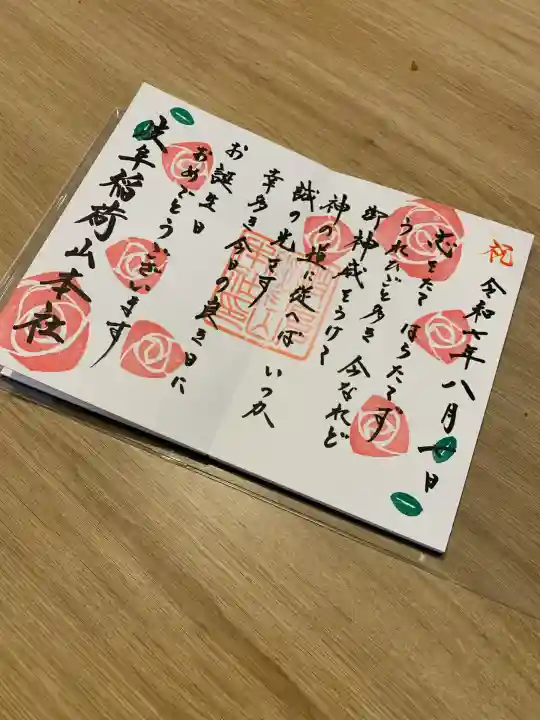 祝
令和七年八月廿日
志をたて はらたてず
うれひごと多き 今なれど
御神威をうけて
神の道に従へば
誠の光さす いつか
幸多き今日の良き日に
お誕生日
おめでとうございます
岐阜稲荷山本社